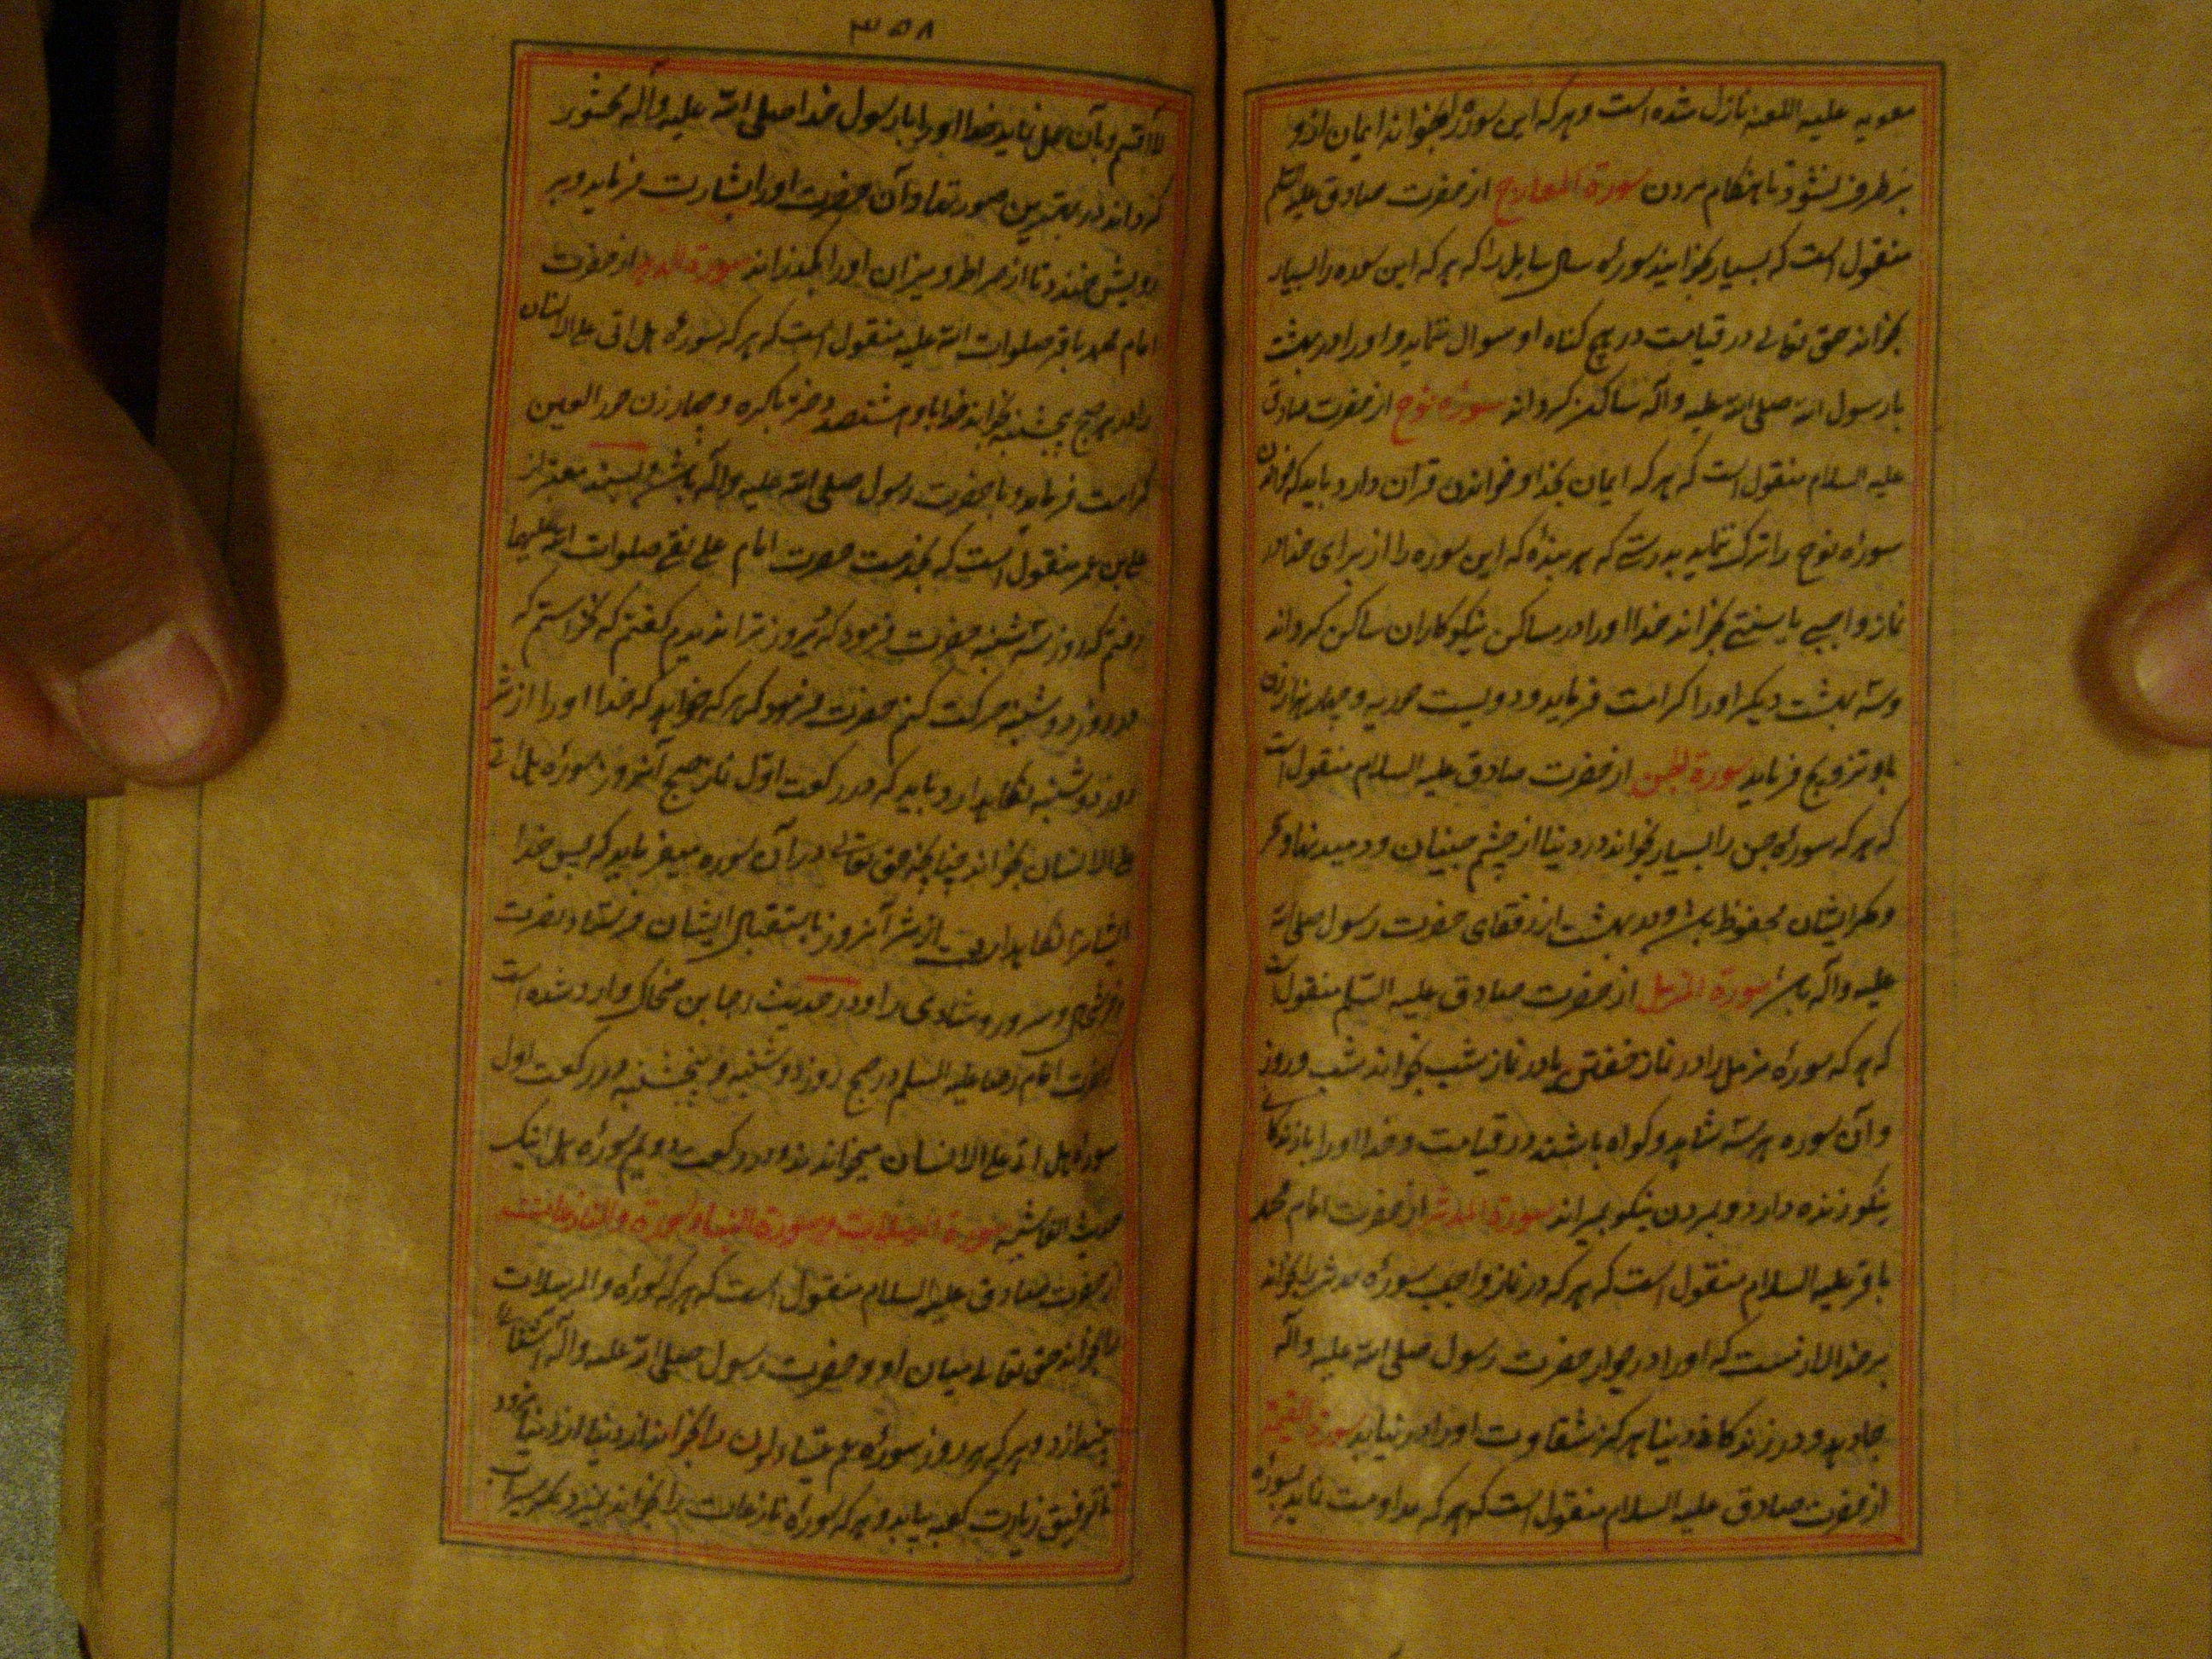 معویه علیه اللعنه نازل شده است و هر که این سوره را بخواند ایمان ازو
برطرف نشود تا هنکام مردن سورة المعارج از حضرت صادق علیه السلم
منقول است که بسیار بخوانید سورهٔ سال سایل را که هر که این سوره را بسیار
بخواند حق تعالی در قیامت در هیچ کناه او سوال ننماید و او را در بهشت
با رسول الله صلی الله علیه وآله ساکن کرداند سورهٔ نوح از حضرت صادق
علیه السلام منقول است که هر که ایمان بخدا و خواندن قرآن دارد باید که خواندن
سورهٔ نوح را ترک ننماید بدرستی که هر بندهٔ که این سوره را از برای خدا در
نماز واجبی یا سنتی بخواند خدا او را در مساکن نیکوکاران ساکن کرداند
و سه بهشت دیکر او را کرامت فرماید و دویست حوریه و چهار هزار زن
باو تزویج فرماید سورة الجن از حضرت صادق علیه السلام منقول است
که هر که سورهٔ جن را بسیار بخواند در دنیا از چشم جنیان و دمیدنها و سحر
و مکر ایشان محفوظ باشد و در بهشت از رفقای حضرت رسول صلی الله
علیه وآله باشد سورة المزمل از حضرت صادق علیه السلم منقول است
که هر که سورهٔ مزمل را در نماز خفتن یا در نماز شب بخواند شب و روز
و آن سوره هر سه شاهد و کواه باشند در قیامت و خدا او را بزندکانی
نیکو زنده دارد و بمردن نیکو بمیراند سورة المدثر از حضرت امام محمد
باقر علیه السلام منقول است که هر که در نماز واجب سورهٔ مدثر را بخواند
بر خدا لازمست که او را در جوار حضرت رسول صلی الله علیه وآله
جا دهد و در زندکانی دنیا هرکز شقاوت او را در نیابد سورة القیمة
از حضرت صادق علیه السلام منقول است که هر که مداومت نماید بسورهٔ
۳۵۸
لا اقسم و بآن عمل نماید خدا او را با رسول خدا صلی الله علیه وآله محشور
کرداند در بهترین صورتها و آن حضرت او را بشارت فرماید و بر
رویش خندد تا از صراط و میزان او را بگذراند سورة الدهر از حضرت
امام محمد باقر صلوات الله علیه منقول است که هر که سورهٔ هل اتی علی الانسان
را در هر صبح پنجشنبه بخواند خدا باو هشتصد دختر باکره و چهار زن حور العین
کرامت فرماید و با حضرت رسول صلی الله علیه وآله باشد و بسند معتبر از
علی بن عمر منقول است که بخدمت حضرت امام علی نقی صلوات الله علیهما
رفتم در روز سه شنبه حضرت فرمود که دیروز ترا ندیدم کفتم که نخواستم که
در روز دوشنبه حرکت کنم حضرت فرمود که هر که خواهد که خدا او را از شر
روز دوشنبه نکاهدارد باید که در رکعت اول نماز صبح آنروز سورهٔ هل اتی
علی الانسان بخواند چنانچه حق تعالی در آن سوره میفرماید که پس خدا
ایشانرا نکاهدارد از شر آنروز باستقبال ایشان فرستاد نضرت
و خوشحالی و سرور و شادی را و در حدیث رجا بن ضحاک وارد شده است
حضرت امام رضا علیه السلم در صبح روز دوشنبه و پنجشنبه در رکعت اول
سورهٔ هل اتی علی الانسان میخواندند و در رکعت دویم سورهٔ هل اتیک
حدیث الغاشیه سورة المرسلات و سورة النبا و سورة والنازعات
از حضرت صادق علیه السلام منقول است که هر که سورهٔ والمرسلات
را بخواند حق تعالی میان او و حضرت رسول صلی الله علیه وآله آشنائی
بیندازد و هر که هر روز سورهٔ عم یتساءلون را بخواند از دنیا نرود
تا توفیق زیارت کعبه بیابد و هر که سورهٔ نازعات را بخواند نمیرد مکر سیراب